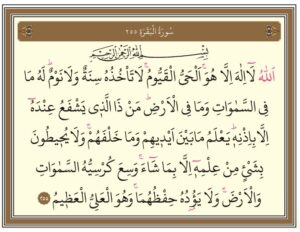 سُورَةُ الْبَقَرَةِ ٢٥٥
بِسْمِ اللّٰهِ الرَّحْمٰنِ الرَّح۪يمِ
اَللّٰهُ لَٓا اِلٰهَ اِلَّا هُوَۚ اَلْحَيُّ الْقَيُّومُۚ لَا تَأْخُذُهُ سِنَةٌ وَلَا نَوْمٌۜ لَهُ مَا
فِي السَّمٰوَاتِ وَمَا فِي الْاَرْضِۜ مَنْ ذَا الَّذ۪ي يَشْفَعُ عِنْدَهُٓ
اِلَّا بِاِذْنِه۪ۜ يَعْلَمُ مَا بَيْنَ اَيْد۪يهِمْ وَمَا خَلْفَهُمْۚ وَلَا يُح۪يطُونَ
بِشَيْءٍ مِنْ عِلْمِه۪ٓ اِلَّا بِمَا شَٓاءَۚ وَسِعَ كُرْسِيُّهُ السَّمٰوَاتِ
وَالْاَرْضَۚ وَلَا يَؤُ۫دُهُ حِفْظُهُمَاۚ وَهُوَ الْعَلِيُّ الْعَظ۪يمُ ٢٥٥